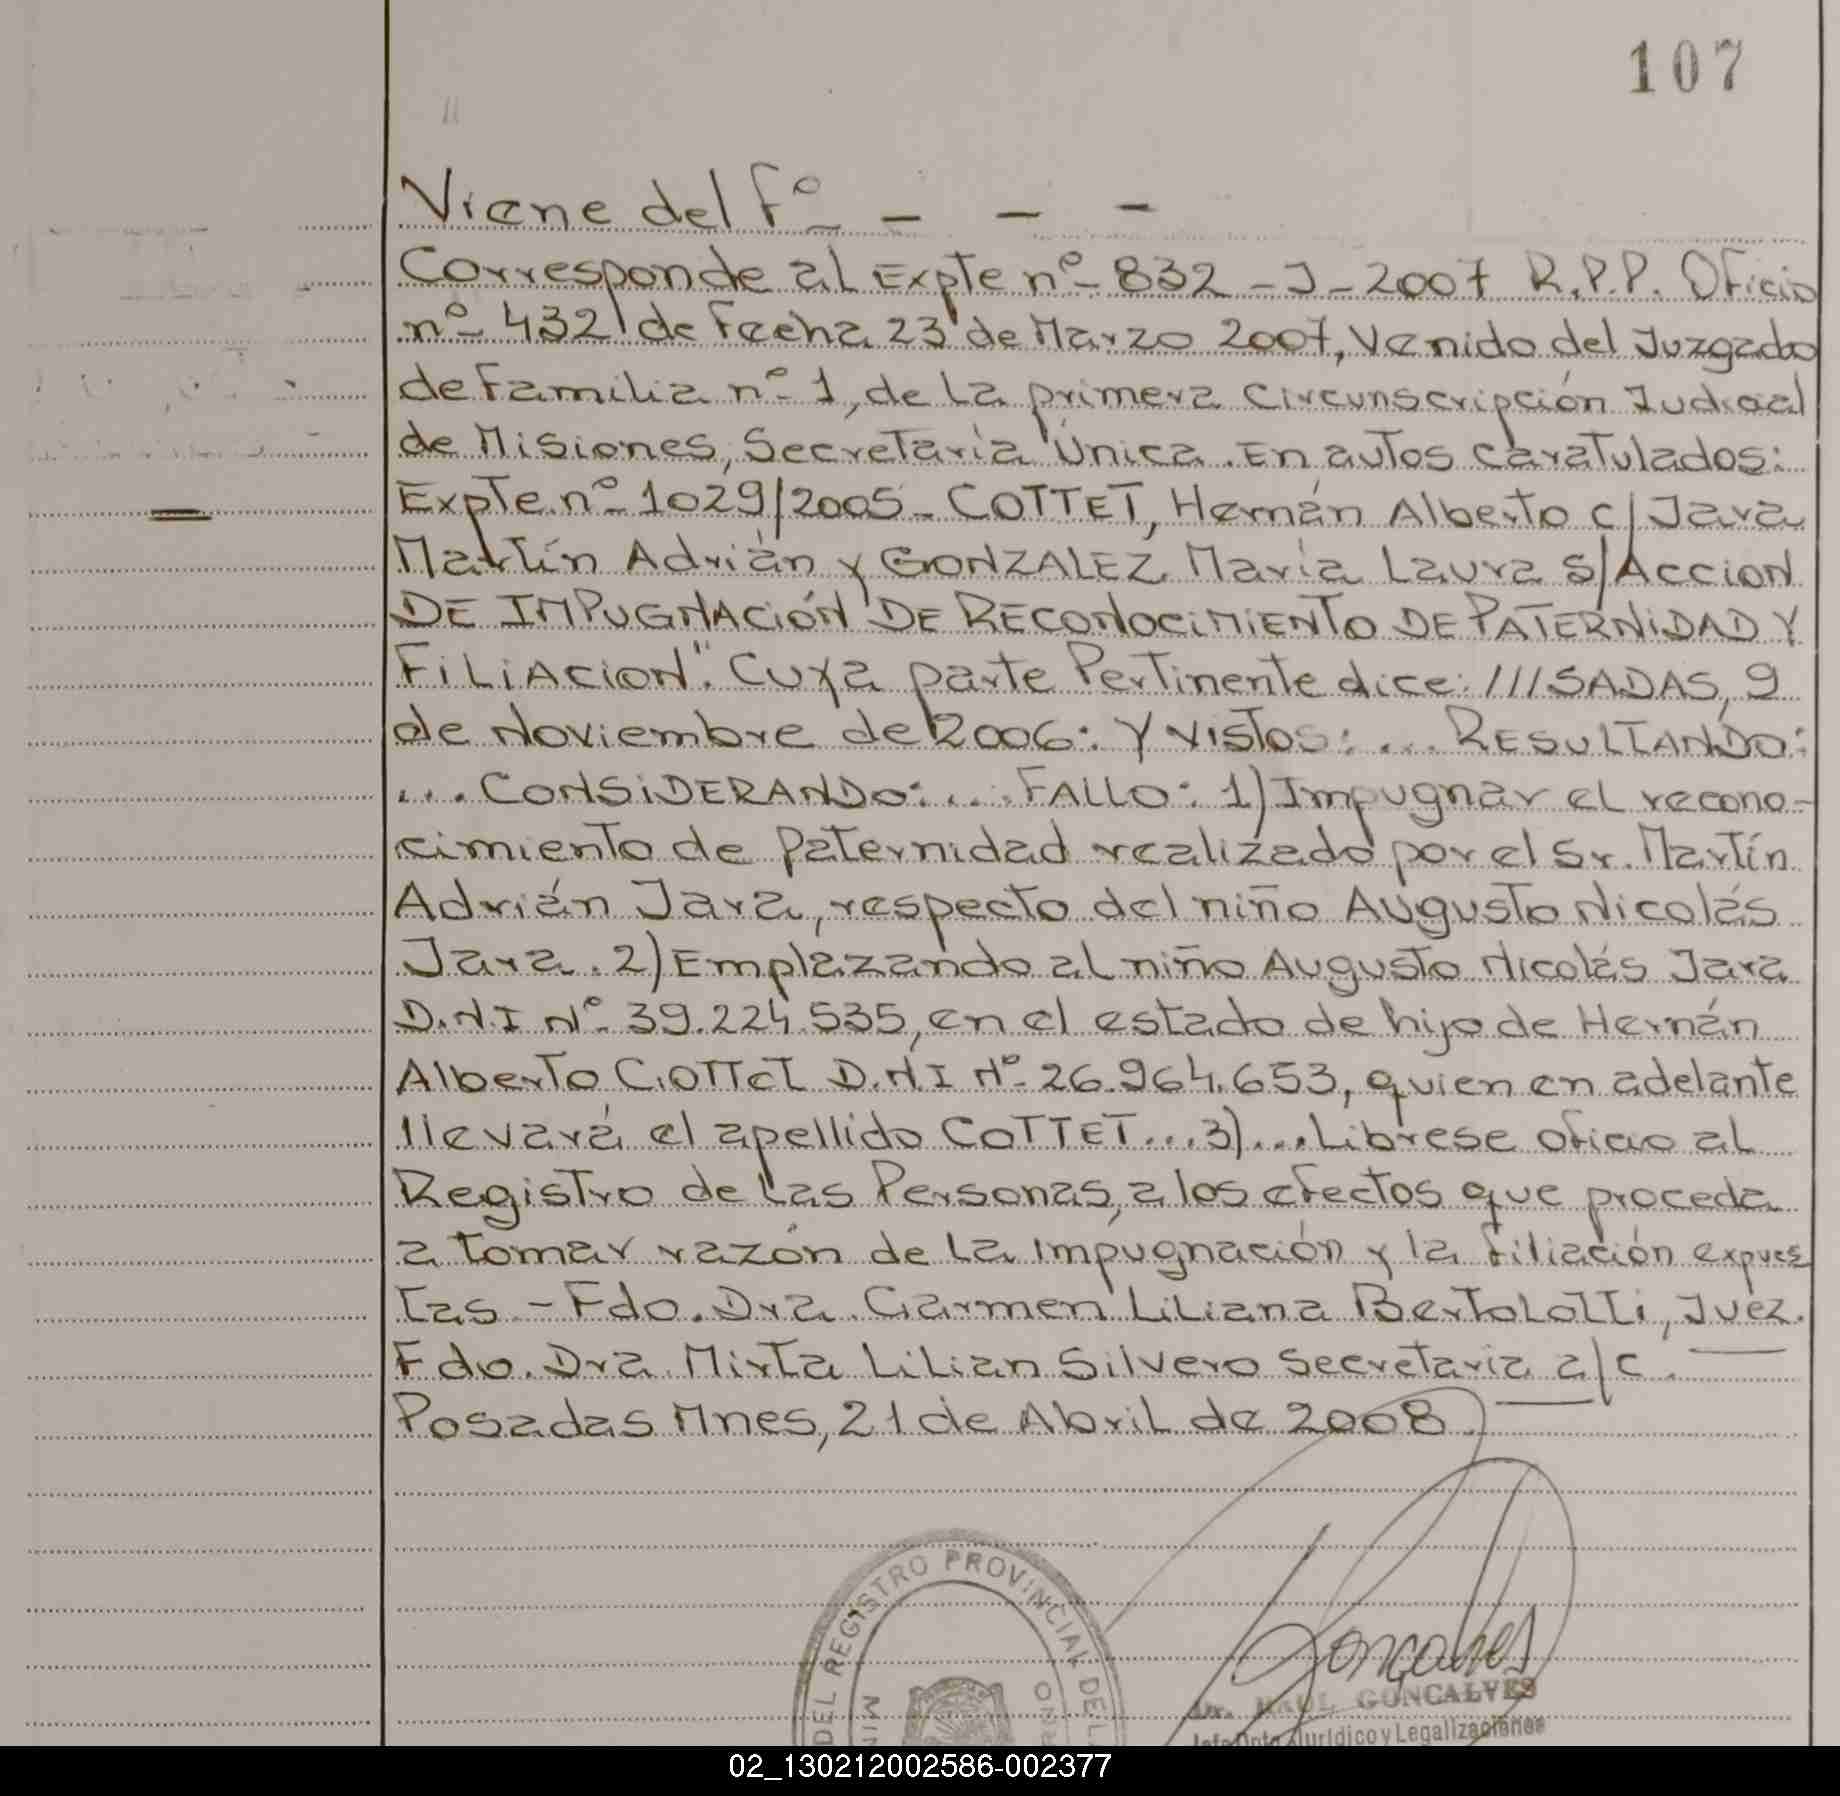 107
Viene del Fº - - -
Corresponde al Expte nº 832 - J - 2007 R.P.P. Oficio
nº 432 de Fecha 23 de Marzo 2007, Venido del Juzgado
de Familia nº 1, de La primera Circunscripción Judicial
de Misiones, Secretaría Única. En autos caratulados:
Expte. nº 1029/2005 - COTTET, Hernán Alberto c/ Jara
Martín Adrián y GONZALEZ María Laura s/ ACCION
DE IMPUGNACIÓN DE RECONOCIMIENTO DE PATERNIDAD Y
FILIACION". Cuya parte Pertinente dice: ///SADAS, 9
de Noviembre de 2006: Y VISTOS: ... RESULTANDO:
... CONSIDERANDO: ... FALLO: 1) Impugnar el recono-
cimiento de Paternidad realizado por el Sr. Martín
Adrián Jara, respecto del niño Augusto Nicolás
Jara. 2) Emplazando al niño Augusto Nicolás Jara
D.N.I Nº 39.224.535, en el estado de hijo de Hernán
Alberto COTTET D.N.I Nº 26.964.653, quien en adelante
llevará el apellido COTTET...3)...Librese oficio al
Registro de Las Personas, a los efectos que proceda
a tomar razón de La impugnación y la filiación expues
tas - Fdo. Dra. Carmen Liliana Bertolotti, Juez.
Fdo. Dra. Mirta Lilian Silvero Secretaria a/c.
Posadas Mnes, 21 de Abril de 2008.
DEL REGISTRO PROVINCIAL DE L
MIN
Gonçalves
Dr. RAUL GONCALVES
Jefe Dpto Jurídico y Legalizaciones
02_130212002586-002377